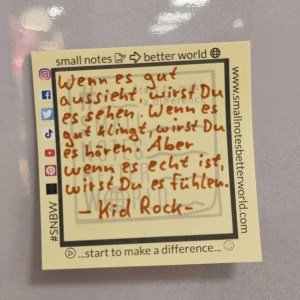 small notes better world
Wenn es gut
aussieht, wirst Du
es sehen. Wenn es
gut klingt, wirst Du
es hören. Aber
wenn es echt ist,
wirst Du es fühlen.
- Kid Rock -
...start to make a difference...
#SNBW
www.smallnotesbetterworld.com